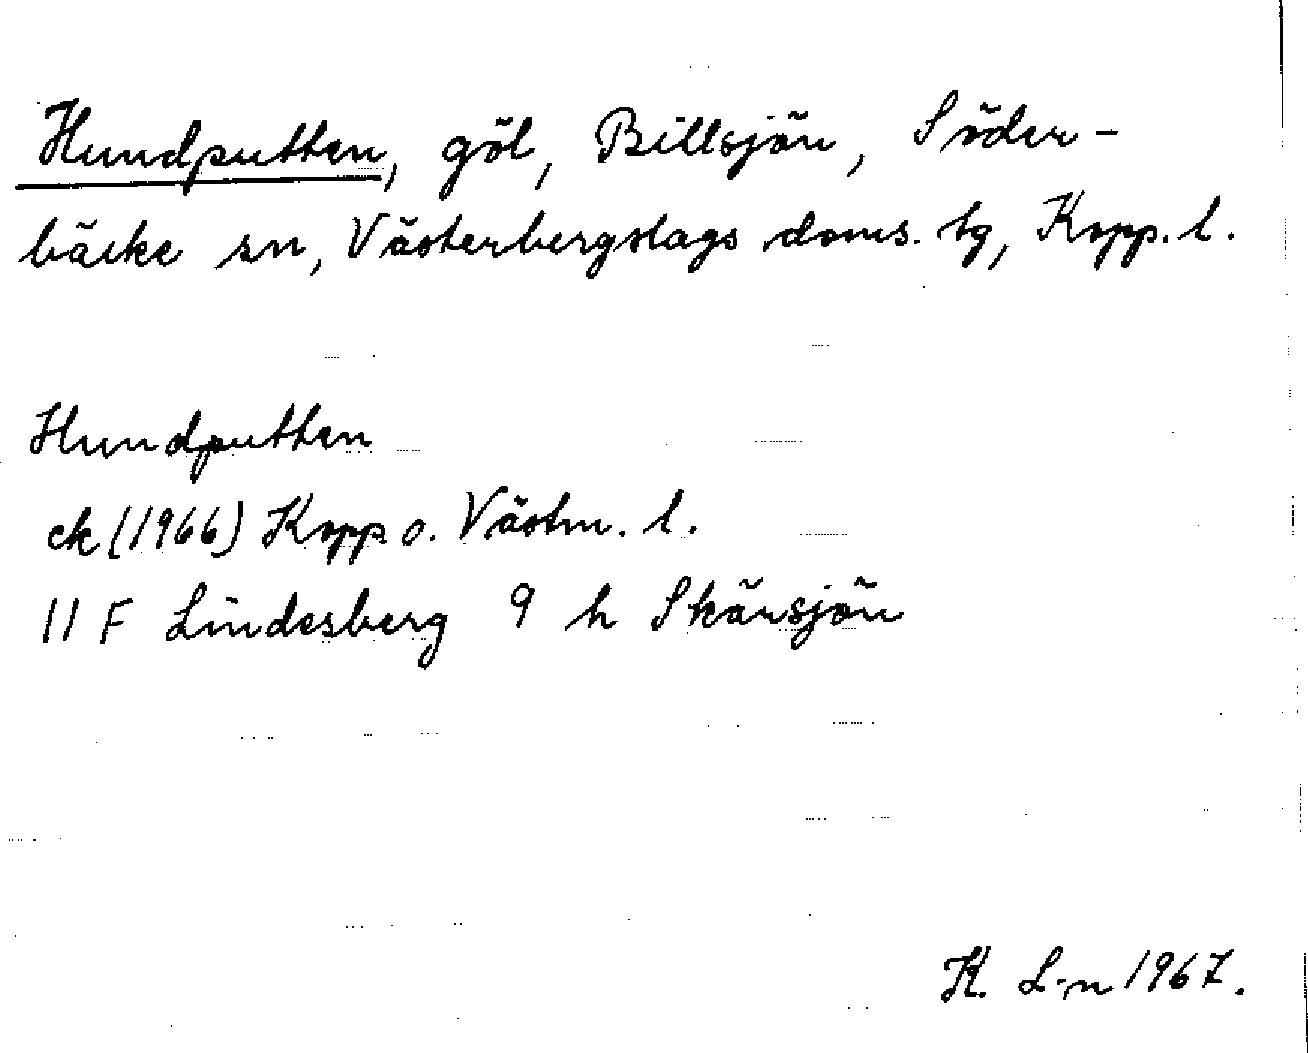 Hundputten, göl, Billsjön, Söder-
bärke sn, Västerbergslags doms. tg, Kopp. l.
Hundputten
ek (1966) Kopp o. Västm. l.
11 F Lindesberg 9 h Skärsjön
K. L-n 1967.